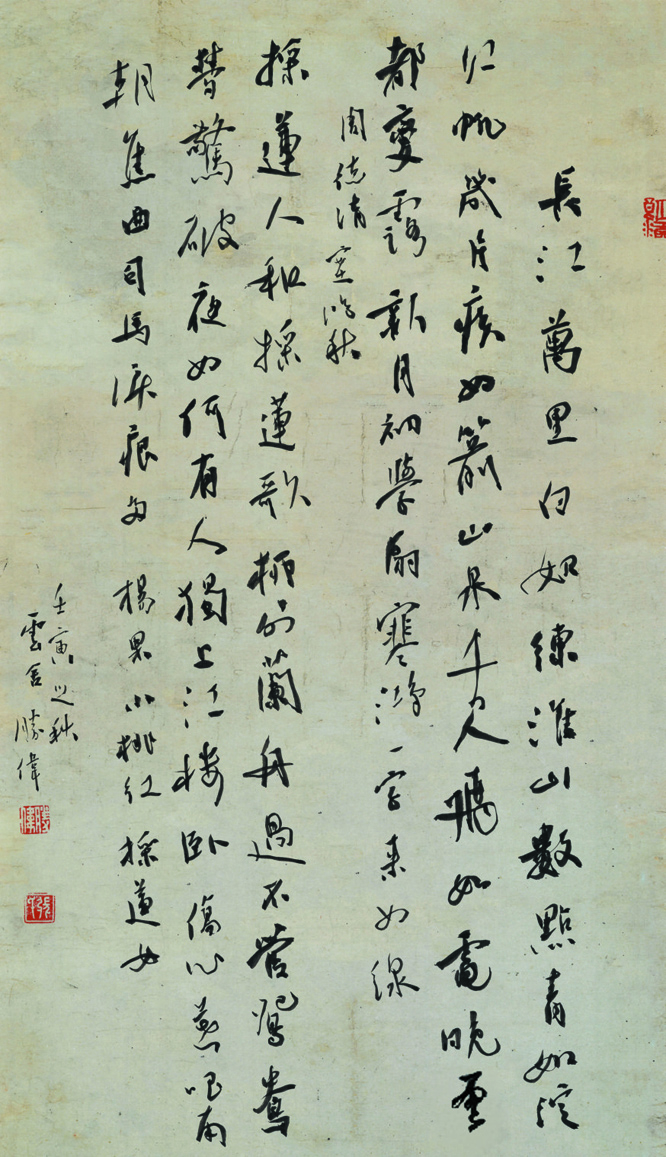 長江萬里白如練淮山數點青如淀
江帆幾片疾如箭山泉千尺飛如電晚雲
都變露新月初學扇寒鴻一字来如線
周德清塞鴻秋
採蓮人和採蓮歌柳外蘭舟過不管鴛鴦
夢驚破夜如何有人獨上江樓臥傷心莫唱南
朝舊曲司馬淚痕多 楊果小桃紅採蓮女
壬寅之秋
雲舍勝偉